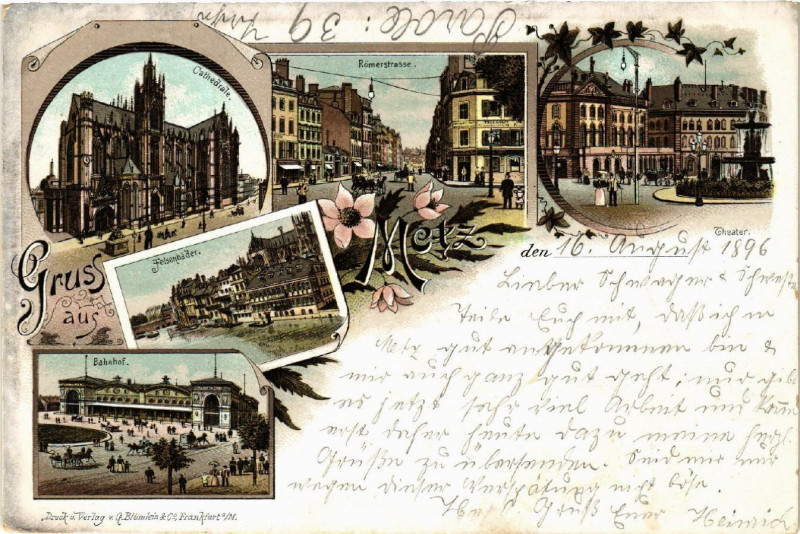 Parole: 39
Cathedrale.
Römerstrasse.
Theater.
Felsenbäder.
Bahnhof.
Gruss
aus
Metz
den 16. August 1896
Lieber Schwager & Schwest
Teile Euch mit, daß ich in
Metz gut angekommen bin &
mir auch ganz gut geht, nur gibt
es jetzt sehr viel Arbeit und komme
erst daher heute dazu meine herzl.
Grüße zu übersenden. Seid mir nur
wegen dieser Verspätung nicht böse.
Gruß Euer Heinrich
Druck u. Verlag v. G. Blümlein & Co., Frankfurt a/M.